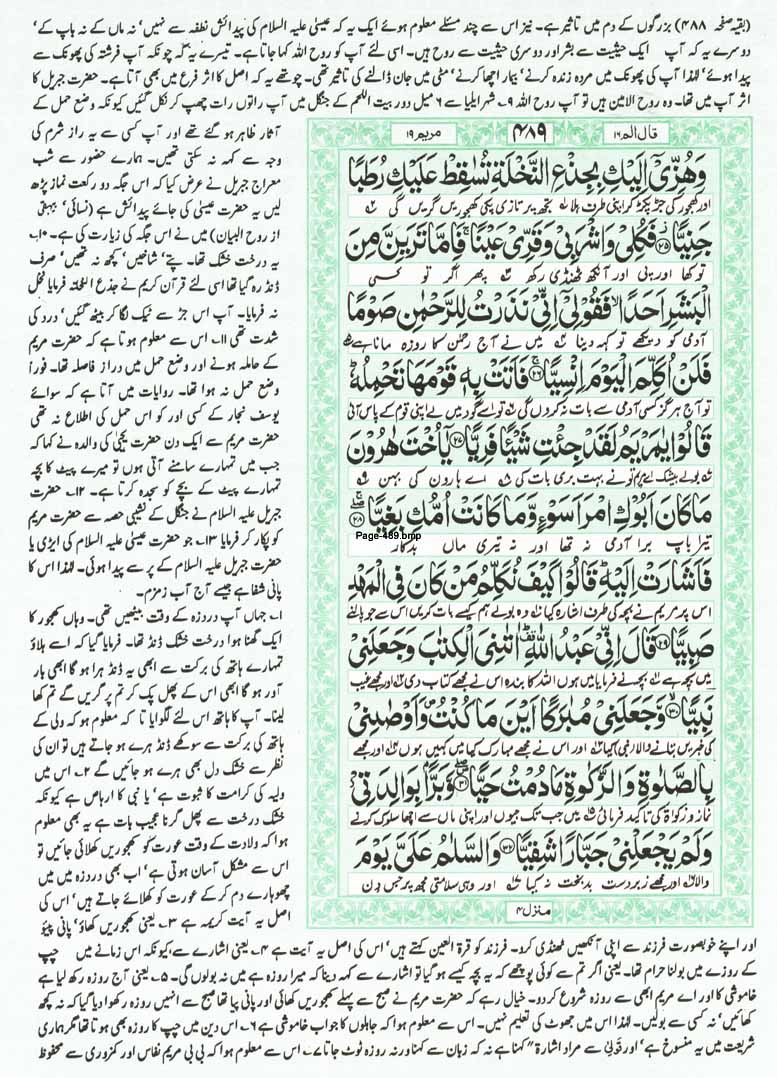 (بقیہ صفحہ ۴۸۸) بزرگوں کے دم میں تاثیر ہے۔ نیز اس سے چند مسئلے معلوم ہوئے ایک یہ کہ عیسیٰ علیہ السلام کی پیدائش نطفہ سے نہیں' نہ ماں کے نہ باپ کے'
دوسرے یہ کہ آپ ایک حیثیت سے بشر اور دوسری حیثیت سے روح ہیں۔ اسی لئے آپ کو روح اللہ کہا جاتا ہے۔ تیسرے یہ کہ چونکہ آپ فرشتہ کی پھونک سے
پیدا ہوئے' لہٰذا آپ کی پھونک میں مردہ زندہ کرنے' بیمار اچھا کرنے' مٹی میں جان ڈالنے کی تاثیر تھی۔ چوتھے یہ کہ اصل کا اثر فرع میں بھی آتا ہے۔ حضرت جبریل کا
اثر آپ میں تھا۔ وہ روح الامین ہیں تو آپ روح اللہ ۹۔ شہر ایلیا سے ۶ میل دور بیت اللحم کے جنگل میں آپ راتوں رات چھپ کر نکل گئیں کیونکہ وضع حمل کے
آثار ظاہر ہو گئے تھے اور آپ کسی سے یہ راز شرم کی
وجہ سے کہہ نہ سکتی تھیں۔ ہمارے حضور سے شب
معراج جبریل نے عرض کیا کہ اس جگہ دو رکعت نماز پڑھ
لیں یہ حضرت عیسیٰ کی جائے پیدائش ہے (نسائی' بیہقی
از روح البیان) میں نے اس جگہ کی زیارت کی ہے۔ ۱۰۔
یہ درخت خشک تھا۔ پتے' شاخیں' کچھ نہ تھیں' صرف
ڈنڈ رہ گیا تھا اسی لئے قرآن کریم نے جذع النخلۃ فرمایا نخل
نہ فرمایا۔ آپ اس جڑ سے ٹیک لگا کر بیٹھ گئیں' درد کی
شدت تھی ۱۱۔ اس سے معلوم ہوتا ہے کہ حضرت مریم
کے حاملہ ہونے اور وضع حمل میں دراز فاصلہ تھا۔ فوراً
وضع حمل نہ ہوا تھا۔ روایات میں آتا ہے کہ سوائے
یوسف نجار کے کسی اور کو اس حمل کی اطلاع نہ تھی
حضرت مریم سے ایک دن حضرت یحییٰ کی والدہ نے کہا کہ
جب میں تمہارے سامنے آتی ہوں تو میرے پیٹ کا بچہ
تمہارے پیٹ کے بچے کو سجدہ کرتا ہے۔ ۱۲۔ حضرت
جبریل علیہ السلام نے جنگل کے نشیبی حصہ سے حضرت مریم
کو پکار کر فرمایا ۱۳۔ جو حضرت عیسیٰ علیہ السلام کی ایڑی یا
حضرت جبریل علیہ السلام کے پر سے پیدا ہوئی۔ لہٰذا اس کا
پانی شفا ہے جیسے آج آب زمزم۔
۱۔ جہاں آپ دردزہ کے وقت بیٹھیں تھی۔ وہاں کھجور کا
ایک گھنا ہوا درخت خشک ڈنڈ تھا۔ فرمایا گیا کہ اسے ہلاؤ
تمہارے ہاتھ کی برکت سے ابھی یہ ڈنڈ ہرا ہو گا ابھی بار
آور ہو گا ابھی اس کے پھل پک کر تم پر گریں گے تم کھا
لینا۔ آپ کا ہاتھ اس لئے لگوایا تا کہ معلوم ہو کہ ولی کے
ہاتھ کی برکت سے سوکھے ڈنڈ ہرے ہو جاتے ہیں تو ان کی
نظر سے خشک دل بھی ہرے ہو جائیں گے ۲۔ اس میں
ولیہ کی کرامت کا ثبوت ہے' یا نبی کا ارہاص ہے کیونکہ
خشک درخت سے پھل گرنا عجیب بات ہے یہ بھی معلوم
ہوا کہ ولادت کے وقت عورت کو کھجوریں کھلائی جائیں تو
اس سے مشکل آسان ہوتی ہے' اب بھی دردزہ میں میں
چھوہارے دم کر کے عورت کو کھلائے جاتے ہیں' اس کی
اصل یہ آیت کریمہ ہے ۳۔ یعنی کھجوریں کھاؤ' پانی پیئو
قال الم ۱۶
۴۸۹
مریم ۱۹
وَهُزِّىۡۤ اِلَيۡكِ بِجِذۡعِ النَّخۡلَةِ تُسٰقِطۡ عَلَيۡكِ رُطَبًا
اور کھجور کی جڑ پکڑ کر اپنی طرف ہلا ۱ تجھ پر تازی پکی کھجوریں گریں گی ۲
جَنِيًّا ﴿۲۵﴾ فَكُلِىۡ وَاشۡرَبِىۡ وَقَرِّىۡ عَيۡنًا‌ ۚ فَاِمَّا تَرَيِنَّ مِنَ
تو کھا اور پی اور آنکھ ٹھنڈی رکھ ۳ پھر اگر تو کسی
الۡبَشَرِ اَحَدًا ۙ فَقُوۡلِىۡۤ اِنِّىۡ نَذَرۡتُ لِلرَّحۡمٰنِ صَوۡمًا
آدمی کو دیکھے تو کہہ دینا ۴ میں نے آج رحمٰن کا روزہ مانا ہے ۵
فَلَنۡ اُكَلِّمَ الۡيَوۡمَ اِنۡسِيًّا‌ ۚ ﴿۲۶﴾ فَاَتَتۡ بِهٖ قَوۡمَهَا تَحۡمِلُهٗ‌ ؕ
تو آج ہرگز کسی آدمی سے بات نہ کروں گی ۶ تو اسے گود میں لے اپنی قوم کے پاس آئی
قَالُوۡا يٰمَرۡيَمُ لَقَدۡ جِئۡتِ شَيۡـًٔـا فَرِيًّا ﴿۲۷﴾ يٰۤاُخۡتَ هٰرُوۡنَ
۷ بولے بیشک اے مریم تو نے بہت بری بات کی ۸ اے ہارون کی بہن ۹
مَا كَانَ اَبُوۡكِ امۡرَاَ سَوۡءٍ وَّمَا كَانَتۡ اُمُّكِ بَغِيًّا ۖ‌ۚ ﴿۲۸﴾
Page-489.bmp
تیرا باپ برا آدمی نہ تھا اور نہ تیری ماں بدکار
فَاَشَارَتۡ اِلَيۡهِ‌ ؕ قَالُوۡا كَيۡفَ نُـكَلِّمُ مَنۡ كَانَ فِى الۡمَهۡدِ
اس پر مریم نے بچہ کی طرف اشارہ کیا ۱۰ وہ بولے ہم کیسے بات کریں اس سے جو پالنے
صَبِيًّا ﴿۲۹﴾ قَالَ اِنِّىۡ عَبۡدُ اللّٰهِ ؕ اٰتٰٮنِىَ الۡكِتٰبَ وَجَعَلَنِىۡ
میں بچہ ہے بچہ نے فرمایا میں ہوں اللہ کا بندہ اس نے مجھے کتاب دی اور مجھے غیب
نَبِيًّا ۙ‏ ﴿۳۰﴾ وَّجَعَلَنِىۡ مُبٰـرَكًا اَيۡنَ مَا كُنۡتُ ۖ وَاَوۡصٰنِىۡ
کی خبریں بتانے والا (نبی) کیا اور اس نے مجھے مبارک کیا میں کہیں ہوں اور مجھے
بِالصَّلٰوةِ وَالزَّكٰوةِ مَا دُمۡتُ حَيًّا ۖ ﴿۳۱﴾ وَّبَرًّۢا بِوَالِدَتِىۡ
نماز و زکوٰۃ کی تاکید فرمائی جب تک جیوں اور اپنی ماں سے اچھا سلوک کرنے
وَلَمۡ يَجۡعَلۡنِىۡ جَبَّارًا شَقِيًّا ﴿۳۲﴾ وَالسَّلٰمُ عَلَىَّ يَوۡمَ
والا اور مجھے زبردست بدبخت نہ کیا اور وہی سلامتی مجھ پر جس دن
منزل ۴
اور اپنے خوبصورت فرزند سے اپنی آنکھیں ٹھنڈی کرو۔ فرزند کو قرۃ العین کہتے ہیں' اس کی اصل یہ آیت ہے ۴۔ یعنی اشارے سے' کیونکہ اس زمانے میں چپ
کے روزے میں بولنا حرام تھا۔ یعنی اگر تم سے کوئی پوچھے کہ یہ بچہ کیسے ہو گیا تو اشارے سے کہہ دینا کہ میرا روزہ ہے میں نہ بولوں گی۔ ۵۔ یعنی آج روزہ رکھ لیا ہے
خاموشی کا اور اے مریم ابھی سے روزہ شروع کر دو۔ خیال رہے کہ حضرت مریم نے صبح سے پہلے کھجوریں کھائی اور پانی پیا تھا صبح سے انہیں روزہ رکھوا دیا گیا کہ نہ کچھ
کھائیں' نہ کسی سے بولیں۔ لہٰذا اس میں جھوٹ کی تعلیم نہیں۔ اس سے معلوم ہوا کہ جاہلوں کا جواب خاموشی ہے ۶۔ اس دین میں چپ کا روزہ بھی ہوتا تھا مگر ہماری
شریعت میں یہ منسوخ ہے' اور قُولِیْ سے مراد اشارۃ" کہنا ہے نہ کہ زبان سے کہنا ورنہ روزہ ٹوٹ جاتا ۷۔ اس سے معلوم ہوا کہ بی بی مریم نفاس اور کمزوری سے محفوظ